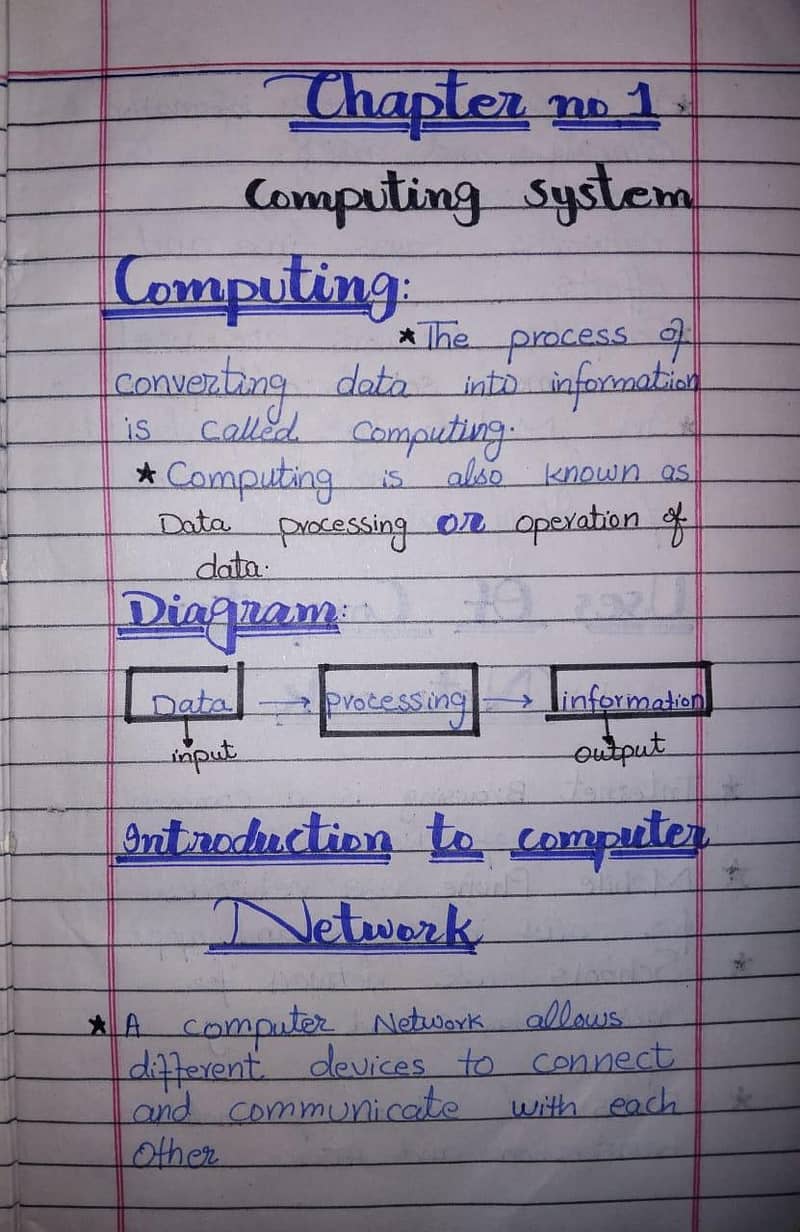 Chapter no 1
Computing system
Computing:
★ The process of
converting data into information
is called computing.
★ Computing is also known as
Data processing or operation of
data.
Diagram:
Data → processing → information
input output
Introduction to computer
Network
★ A computer Network allows
different devices to connect
and communicate with each
other